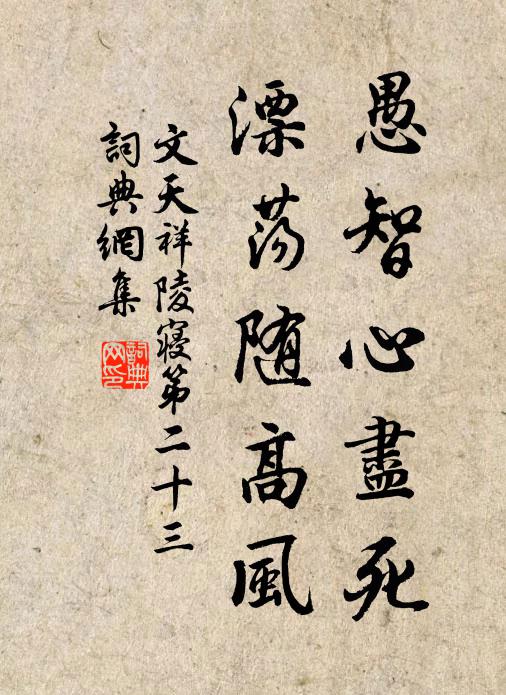 愚智心盡死
漂荡随高風
文天祥陵寝第二十三
詞典網集
詞典网印